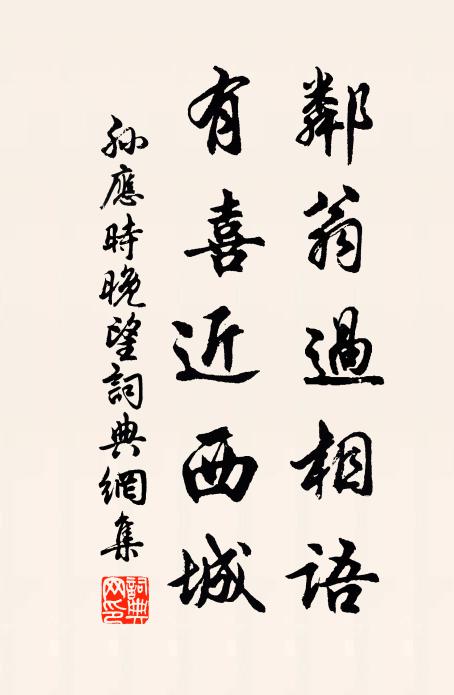 鄰翁過相語
有喜近西城
孫應時晚望詞典網集
詞典網印